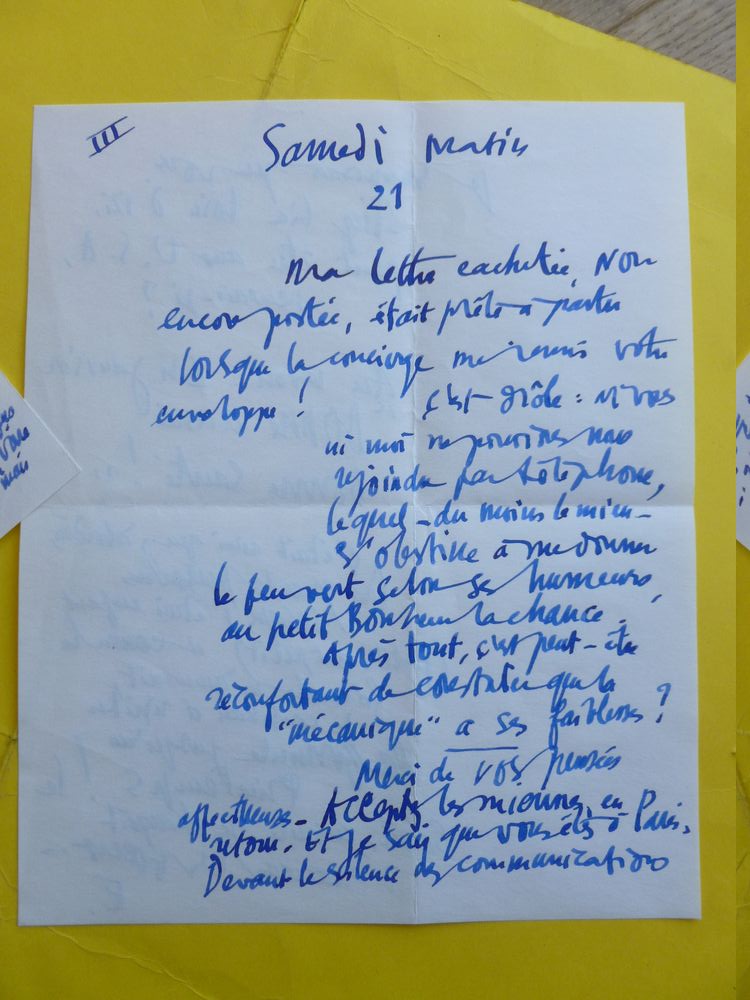 III
Samedi Matin
21
Ma lettre cachetée, Non
encore postée, était prête à partir
lorsque la concierge me remis votre
enveloppe !
C'est drôle : ni vous
ni moi ne pouvions nous
rejoindre par téléphone,
lequel - du moins le mien -
s'obstine à me donner
le feu vert selon ses humeurs,
au petit Bonheur la chance.
Après tout, c'est peut-être
réconfortant de constater que la
"mécanique" a ses faiblesses ?
Merci de vos pensées
affectueuses - Acceptez les miennes, en
retour. Et je sais que vous êtes à Paris.
Devant le silence des communications